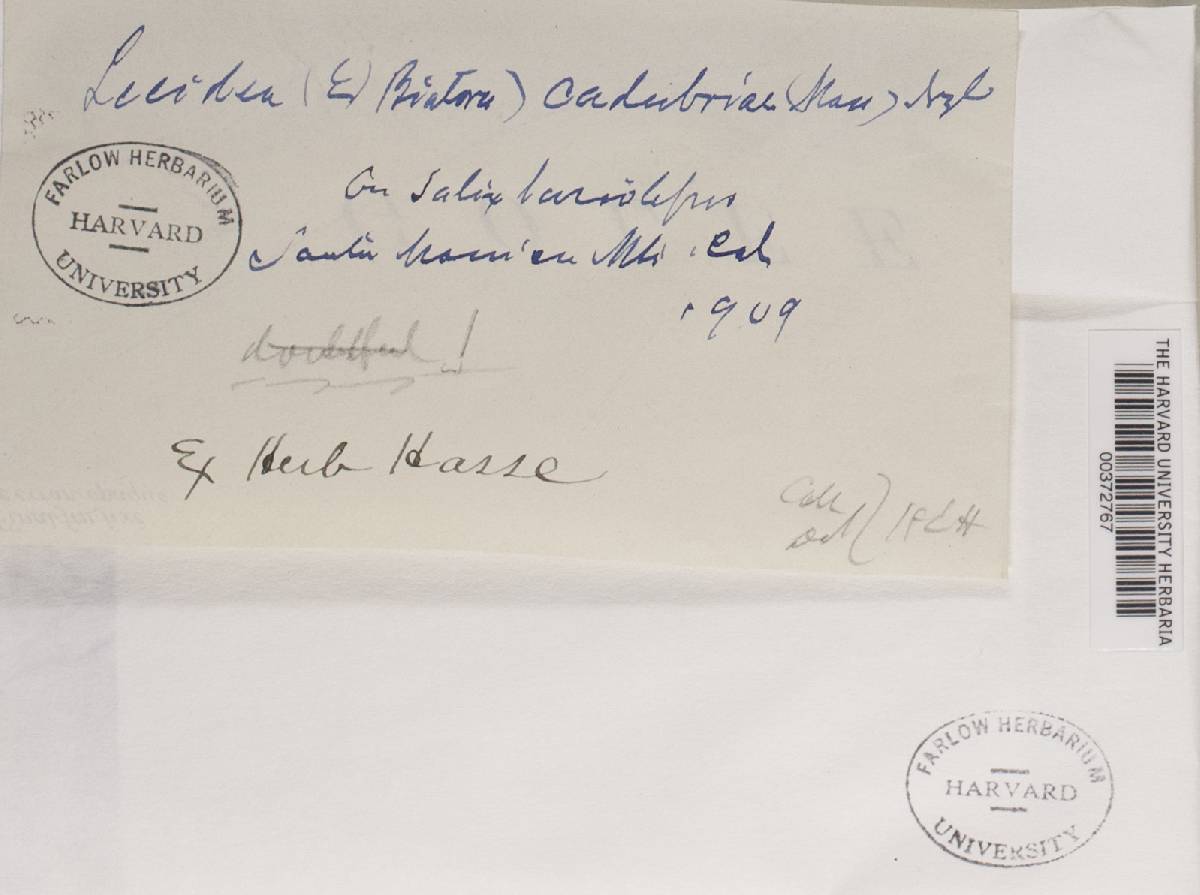 Lecidea (E) Biatora) cadubriae (Mass) Nyl
FARLOW HERBARIUM
HARVARD
UNIVERSITY
On Salix lasiolepis
Santa Monica Mts. Cal
1909
doubtful!
Ex Herb Hasse
Coll
Det
THE HARVARD UNIVERSITY HERBARIA
00372767
FARLOW HERBARIUM
HARVARD
UNIVERSITY